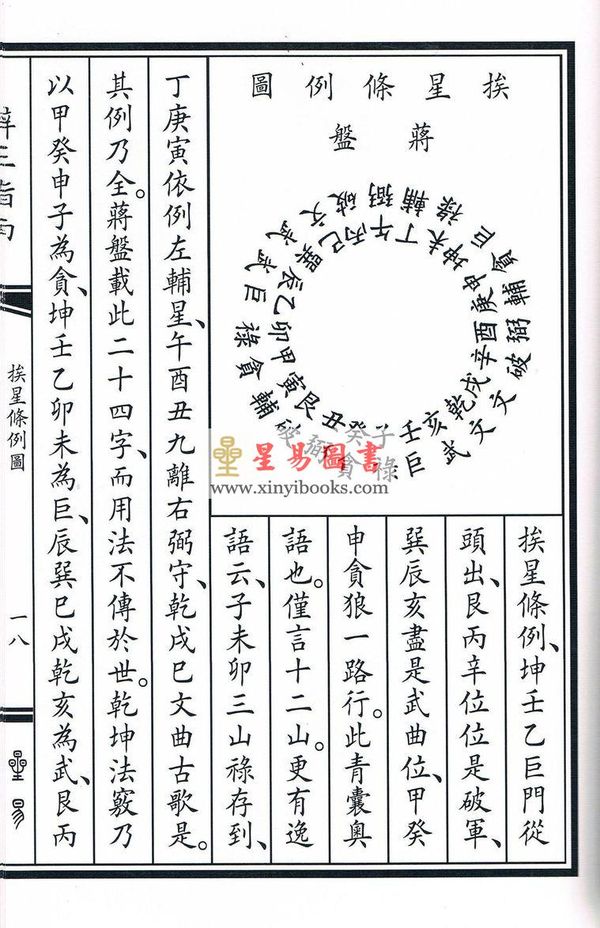 挨星條例圖
蔣盤
武武文破弼輔祿巨貪輔弼破文文武巨祿貪弼破輔貪祿巨
辰巽巳丙午丁未坤申庚酉辛戌乾亥壬子癸丑艮寅甲卯乙
挨星條例、坤壬乙巨門從
頭出、艮丙辛位位是破軍、
巽辰亥盡是武曲位、甲癸
申貪狼一路行。此青囊奧
語也。僅言十二山。更有逸
語云、子未卯三山祿存到、
丁庚寅依例左輔星、午酉丑九離右弼守、乾戌巳文曲古歌是。
其例乃全。蔣盤載此二十四字、而用法不傳於世。乾坤法竅乃
以甲癸申子為貪、坤壬乙卯未為巨、辰巽巳戌乾亥為武、艮丙
挨星條例圖
一八
星易
星易圖書
www.xinyibooks.com